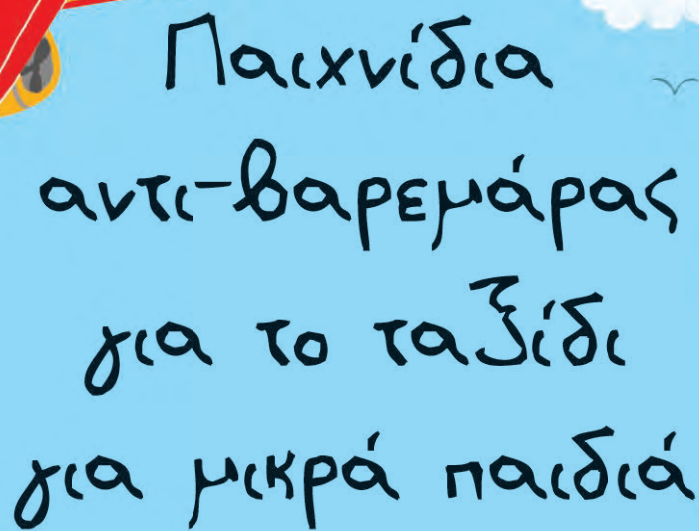 Παιχνίδια
αντι-βαρεμάρας
για το ταξίδι
για μικρά παιδιά